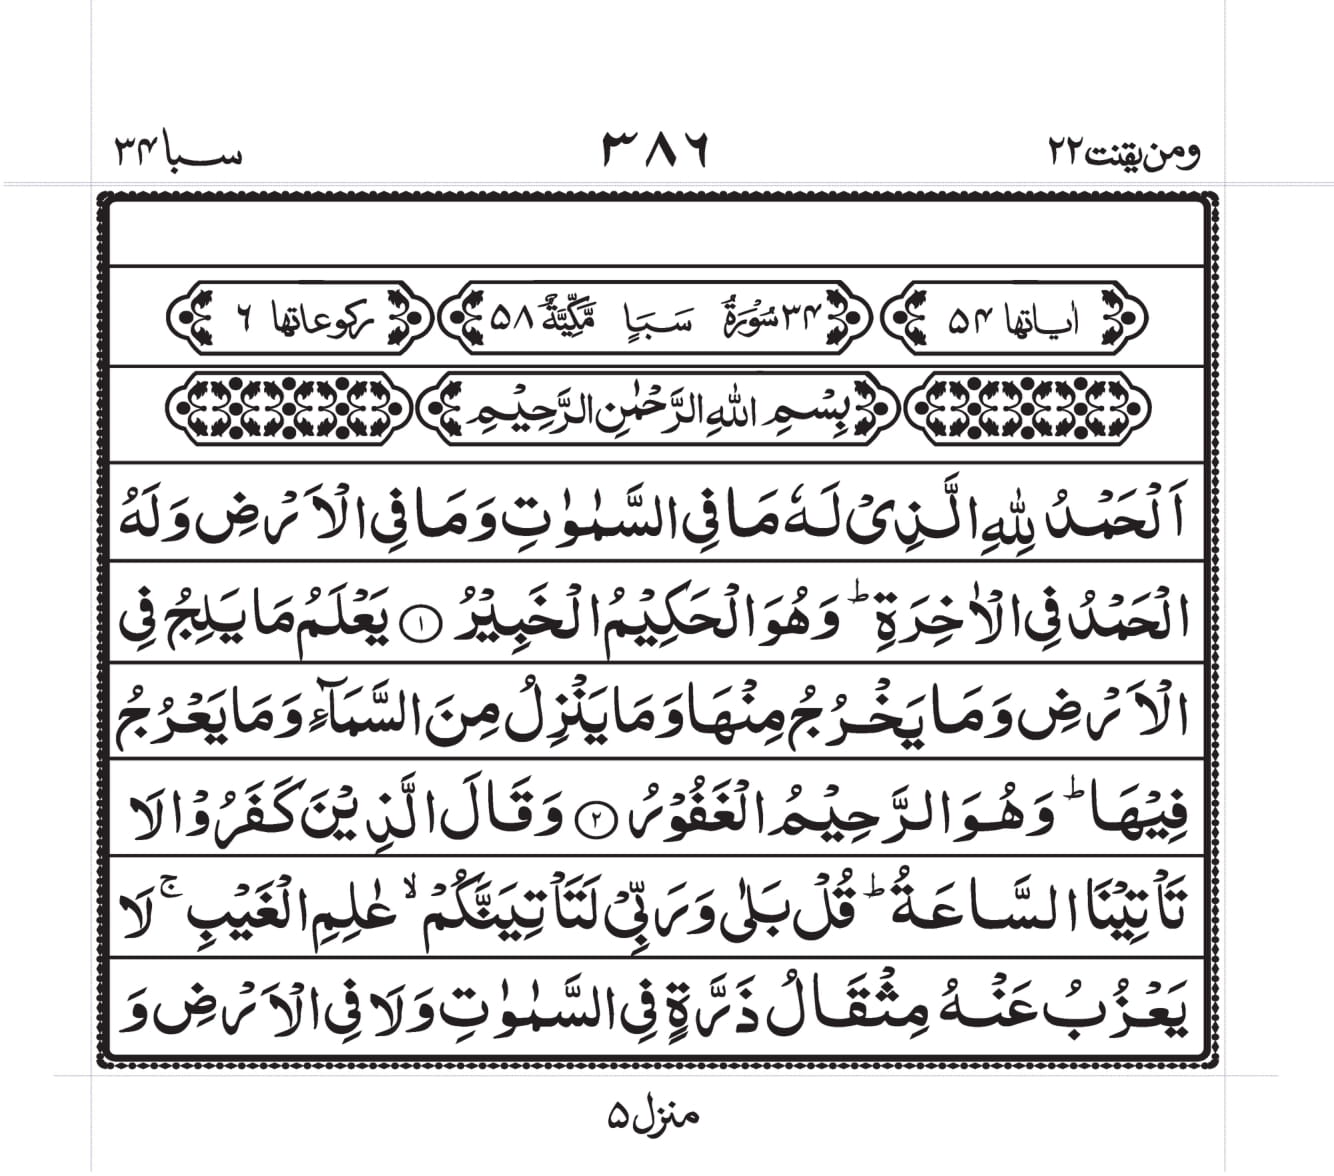 ومن یقنت ۲۲ ۳۸۶ سبا ۳۴
اٰیاتها ۵۴ ۳۴ سُوْرَةُ سَبَاٍ مَّكِّیَّةٌ ۵۸ رکوعاتها ۶
بِسْمِ اللهِ الرَّحْمٰنِ الرَّحِیْمِ
اَلْحَمْدُ لِلّٰهِ الَّذِیْ لَهٗ مَا فِی السَّمٰوٰتِ وَمَا فِی الْاَرْضِ وَلَهُ
الْحَمْدُ فِی الْاٰخِرَةِ ؕ وَهُوَ الْحَكِیْمُ الْخَبِیْرُ ۝۱ یَعْلَمُ مَا یَلِجُ فِی
الْاَرْضِ وَمَا یَخْرُجُ مِنْهَا وَمَا یَنْزِلُ مِنَ السَّمَآءِ وَمَا یَعْرُجُ
فِیْهَا ؕ وَهُوَ الرَّحِیْمُ الْغَفُوْرُ ۝۲ وَقَالَ الَّذِیْنَ كَفَرُوْا لَا
تَاْتِیْنَا السَّاعَةُ ؕ قُلْ بَلٰی وَرَبِّیْ لَتَاْتِیَنَّكُمْ ۙ عٰلِمِ الْغَیْبِ ۚ لَا
یَعْزُبُ عَنْهُ مِثْقَالُ ذَرَّةٍ فِی السَّمٰوٰتِ وَلَا فِی الْاَرْضِ وَ
منزل ۵